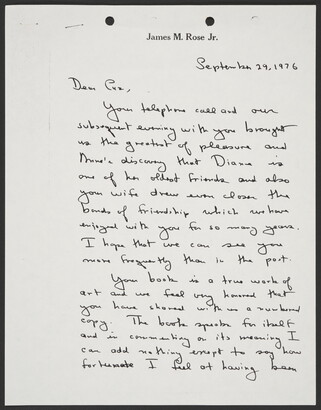 James M. Rose Jr.
September 29, 1976
Dear Rex,
Your telephone call and our
subsequent evening with you brought
us the greatest of pleasure and
Anne's discovery that Diana is
one of her oldest friends and also
your wife drew even closer the
bonds of friendship which we have
enjoyed with you for so many years.
I hope that we can see you
more frequently than in the past.
Your book is a true work of
art and we feel very honored that
you have shared with us a numbered
copy. The book speaks for itself
and in commenting on its meaning I
can add nothing except to say how
fortunate I feel at having been